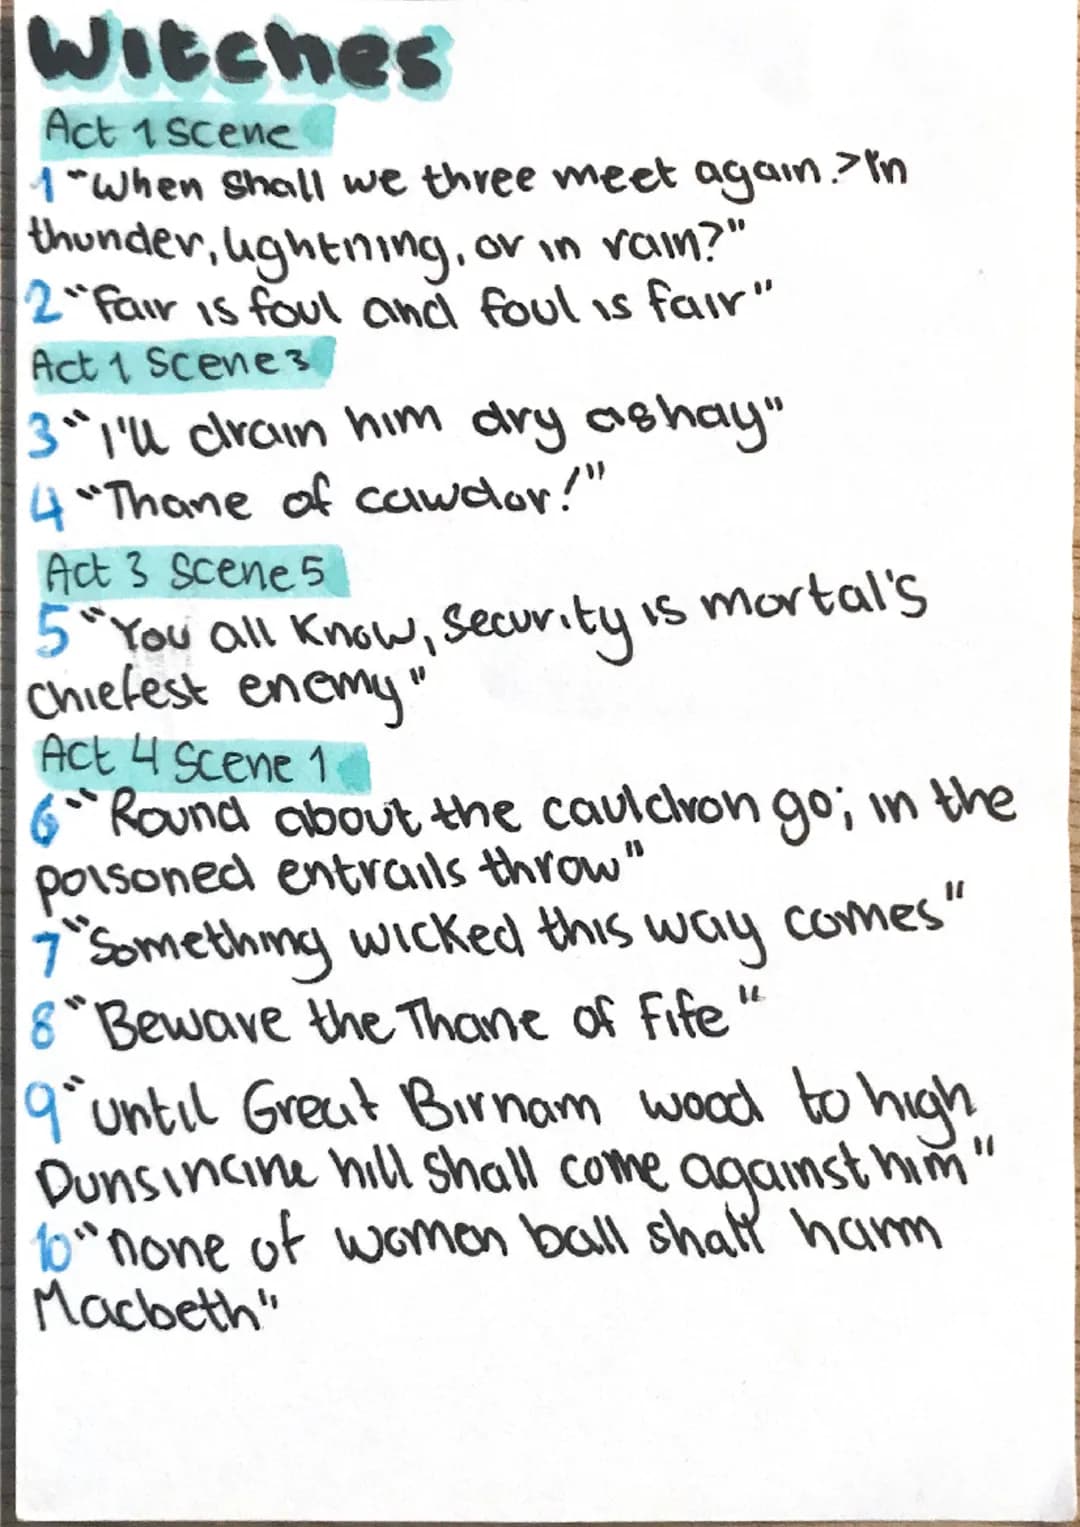 Witches
Act 1 Scene
1 "When shall we three meet again.> In
thunder, lightning, or in rain?"
2 "Fair is foul and foul is fair"
Act 1 Scene 3
3 "I'll drain him dry as hay"
4 "Thane of cawdor!"
Act 3 Scene 5
5 "You all know, security is mortal's
chiefest enemy"
Act 4 Scene 1
6 "Round about the cauldron go; in the
poisoned entrails throw"
7 "Something wicked this way comes"
8 "Beware the Thane of Fife"
9 "until Great Birnam wood to high
Dunsinane hill shall come against him"
10 "none of women ball shall harm
Macbeth"